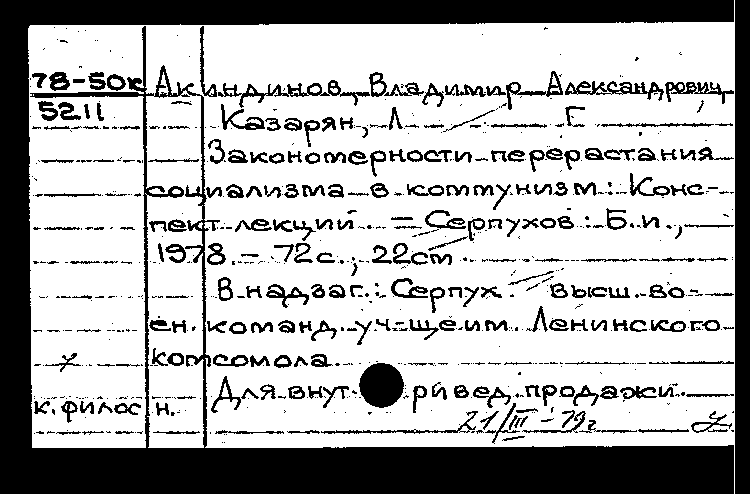 78-50к Акиндинов, Владимир Александрович,
52.11
Казарян, Л Г
Закономерности перерастания
социализма в коммунизм: Конс-
пект лекций. – Серпухов: Б.и.,
1978. – 72с.; 22см.
В надзаг.: Серпух. высш. во-
ен. команд. уч-ще им. Ленинского
комсомола.
Для внут ривед. продажи.
к. филос н.
21/III – 79г